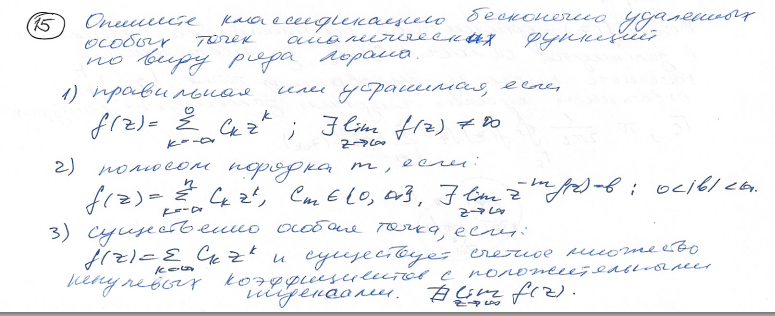 15 Опишите классификацию бесконечно удаленных
особых точек аналитических функций
по виду ряда Лорана.
1) правильная или устранимая, если
f(z) = Σ_{k=-∞}^{0} C_k z^k ; ∃ lim_{z→∞} f(z) ≠ ∞
2) полюсом порядка m, если:
f(z) = Σ_{k=-∞}^{n} C_k z^k, C_m ∉ {0, ∞}, ∃ lim_{z→∞} z^{-m} f(z) = b ; 0<|b|<∞.
3) существенно особая точка, если:
f(z) = Σ_{k=-∞} C_k z^k и существует счетное множество
ненулевых коэффициентов с положительными
индексами. ∄ lim_{z→∞} f(z).